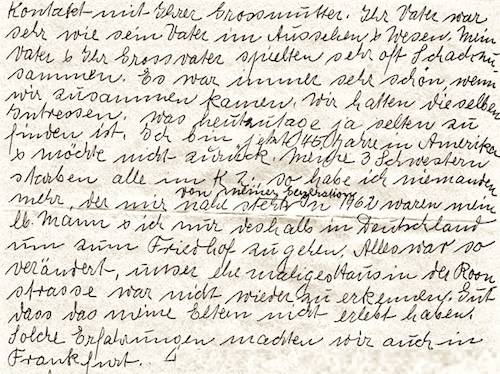 Kontakt mit Ihrer Grossmutter. Ihr Vater war
sehr wie sein Vater im Aussehen & Wesen. Mein
Vater & Ihr Grossvater spielten sehr oft Schach zu
sammen. Es war immer sehr schön wenn
wir zusammen kamen, wir hatten dieselben
Intressen. Was heutzutage ja selten zu
finden ist. Ich bin jetzt 45 Jahre in Amerika
& möchte nicht zurück. Meine 3 Schwestern
starben alle im K Z. so habe ich niemanden
von meiner Generation
mehr, der mir nahe steht. In 1962 waren mein
lb. Mann & ich nur deshalb in Deutschland
um zum Friedhof zu gehen. Alles war so
verändert, unser ehemaliges Haus in der Roon
strasse war nicht wieder zu erkennen. Gut
dass das meine Eltern nicht erlebt haben.
Solche Erfahrungen machten wir auch in
Frankfurt.